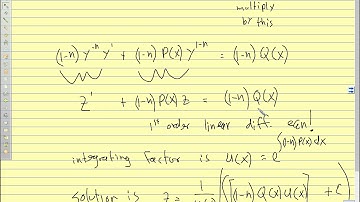 multiply
by this
(1-n) y⁻ⁿ y' + (1-n) P(x) y¹⁻ⁿ = (1-n) Q(x)
z' + (1-n) P(x) z = (1-n) Q(x)
1st order linear diff. eqn!
integrating factor is u(x) = e^∫(1-n)P(x)dx
solution is z = 1/u(x) (∫(1-n) Q(x) u(x) + C)